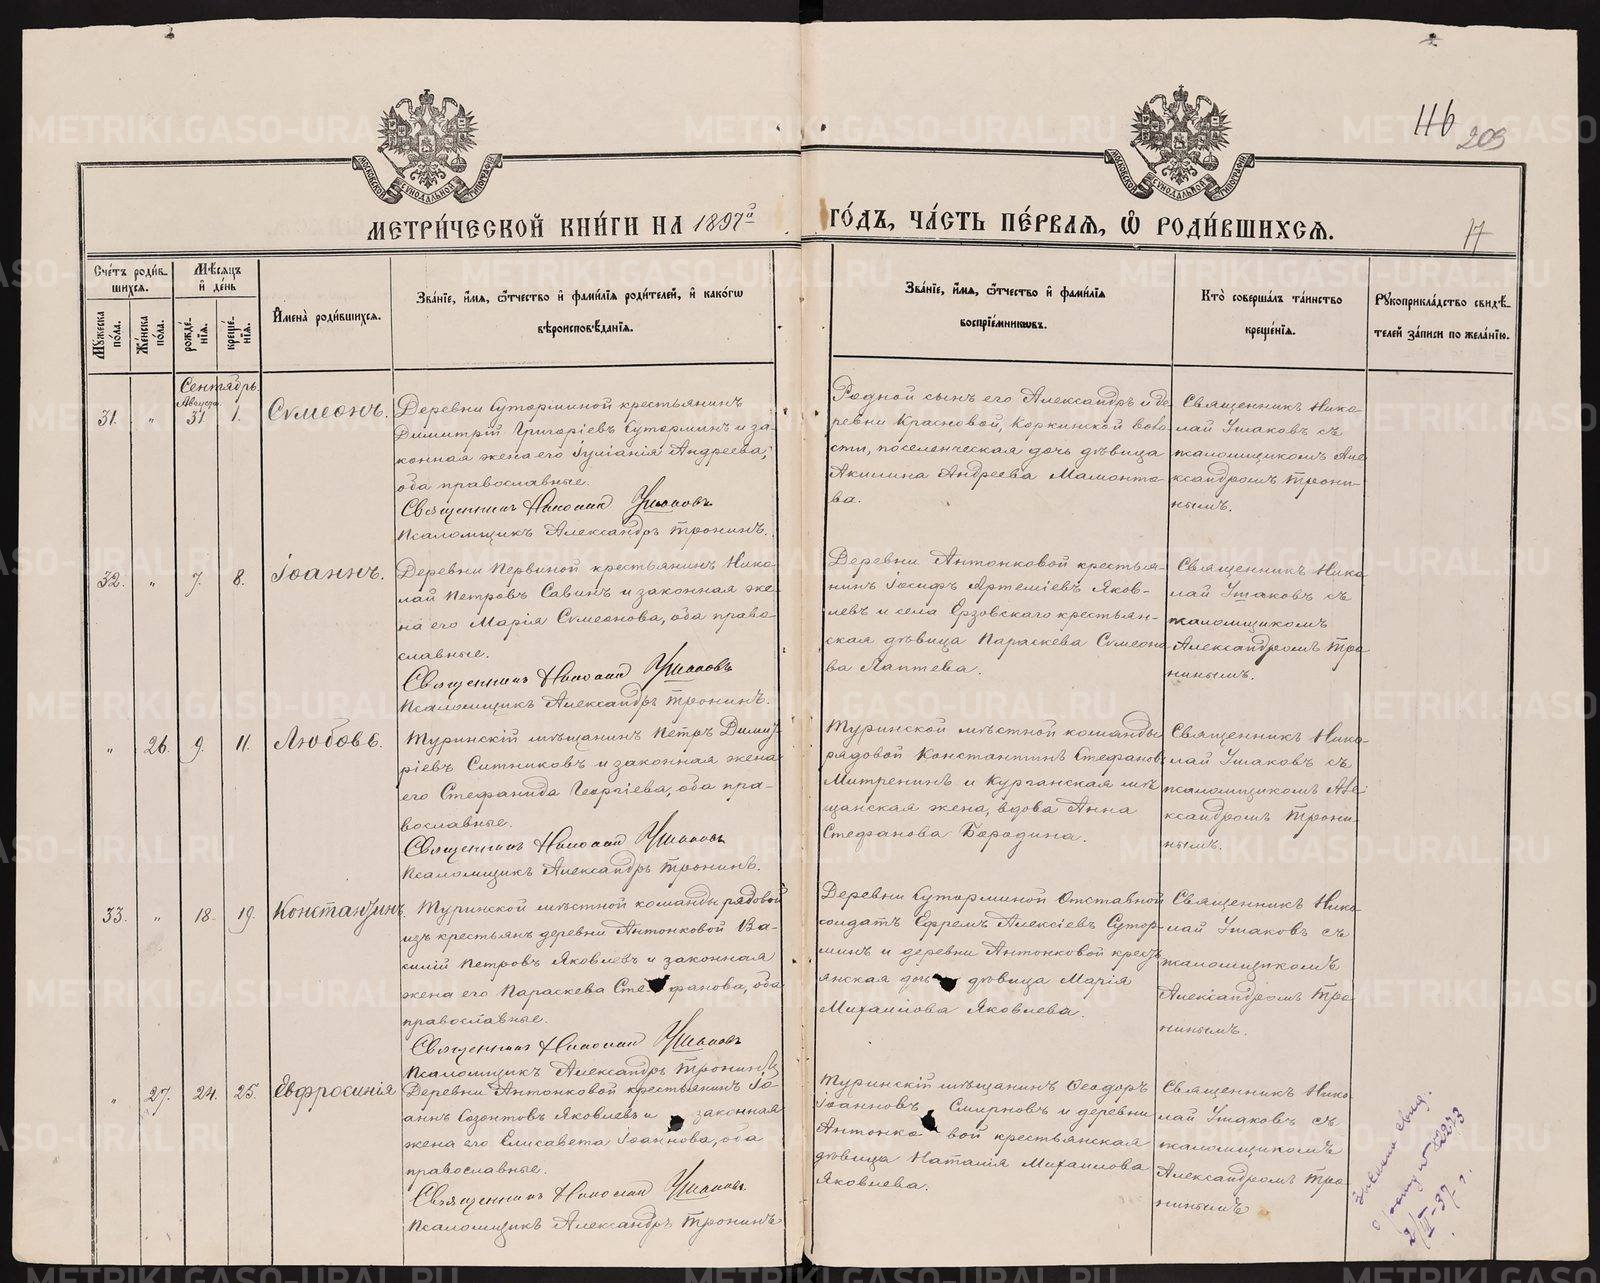 116
203
МЕТРИ́ЧЕСКОЙ КНИ́ГИ НА 1897й
ГО́ДЪ, ЧА́СТЬ ПЕ́РВАЯ, Ѽ РОДИ́ВШИХСЯ.
17
Сче́тъ роди́в-
шихся.
Му́жеска по́ла.
Же́нска по́ла.
Мѣ́сяцъ
и де́нь
рожде́-
нія.
креще́-
нія.
И́мена̀ роди́вшихся.
Зва́ніе, и́мя, ѻ́тчество и фами́лія роди́телей, и како́гѡ
вѣроисповѣ́данія.
Зва́ніе, и́мя, ѻ́тчество и фами́лія
воспріе́мниковъ.
Кто̀ соверша́лъ та́инство
креще́нія.
Рукоприкла́дство свидѣ́-
телей за́писи по жела́нію.
Сентябрь.
31.
"
Августа
31.
1.
Сѵмеонъ.
Деревни Суторминой крестьянинъ
Димитрій Григоріевъ Суторминъ и за-
конная жена его Іуліанія Андреева,
оба православные.
Священникъ Николай Ушаковъ
Псаломщикъ Александръ Тронинъ.
Родной сынъ его Александръ и де-
ревни Красновой, Коркинской воло-
сти, поселенческая дочь дѣвица
Акилина Андреева Мамонто-
ва.
Священникъ Нико-
лай Ушаковъ съ
псаломщикомъ Але-
ксандромъ Трони-
нымъ.
32.
"
7.
8.
Іоаннъ.
Деревни Первиной крестьянинъ Нико-
лай Петровъ Савинъ и законная же-
на его Марія Сѵмеонова, оба право-
славные.
Священникъ Николай Ушаковъ
Псаломщикъ Александръ Тронинъ.
Деревни Антонковой крестья-
нинъ Іосифъ Артеміевъ Яков-
левъ и села Ерзовскаго крестьян-
ская дѣвица Параскева Сѵмеоно-
ва Лаптева.
Священникъ Нико-
лай Ушаковъ съ
псаломщикомъ
Александромъ Тро-
нинымъ.
"
26.
9.
11.
Любовь.
Туринскій мѣщанинъ Петръ Димит-
ріевъ Ситниковъ и законная жена
его Стефанида Георгіева, оба пра-
вославные.
Священникъ Николай Ушаковъ
Псаломщикъ Александръ Тронинъ.
Туринской мѣстной команды
рядовой Константинъ Стефановъ
Митренинъ и Курганская мѣ-
щанская жена, вдова Анна
Стефанова Бородина.
Священникъ Нико-
лай Ушаковъ съ
псаломщикомъ Але-
ксандромъ Трони-
нымъ.
33.
"
18.
19.
Константинъ
Туринской мѣстной команды рядовой
изъ крестьянъ деревни Антонковой Ва-
силій Петровъ Яковлевъ и законная
жена его Параскева Стефанова, оба
православные.
Священникъ Николай Ушаковъ
Псаломщикъ Александръ Тронинъ
Деревни Суторминой Отставной
солдатъ Ефремъ Алексіевъ Сутор-
минъ и деревни Антонковой кресть-
янская дочь дѣвица Марія
Михаилова Яковлева.
Священникъ Нико-
лай Ушаковъ съ
псаломщикомъ
Александромъ Тро-
нинымъ.
"
27.
24.
25.
Евфросинія
Деревни Антонковой крестьянинъ Іо-
аннъ Созонтовъ Яковлевъ и законная
жена его Елисавета Іоаннова, оба
православные.
Священникъ Николай Ушаковъ
Псаломщикъ Александръ Тронинъ
Туринскій мѣщанинъ Ѳеодоръ
Іоанновъ Смирновъ и деревни
Антонковой крестьянская
дѣвица Наталія Михаилова
Яковлева.
Священникъ Нико-
лай Ушаковъ съ
псаломщикомъ
Александромъ Тро-
нинымъ
свид.
2/III-37 г.
METRIKI.GASO-URAL.RU